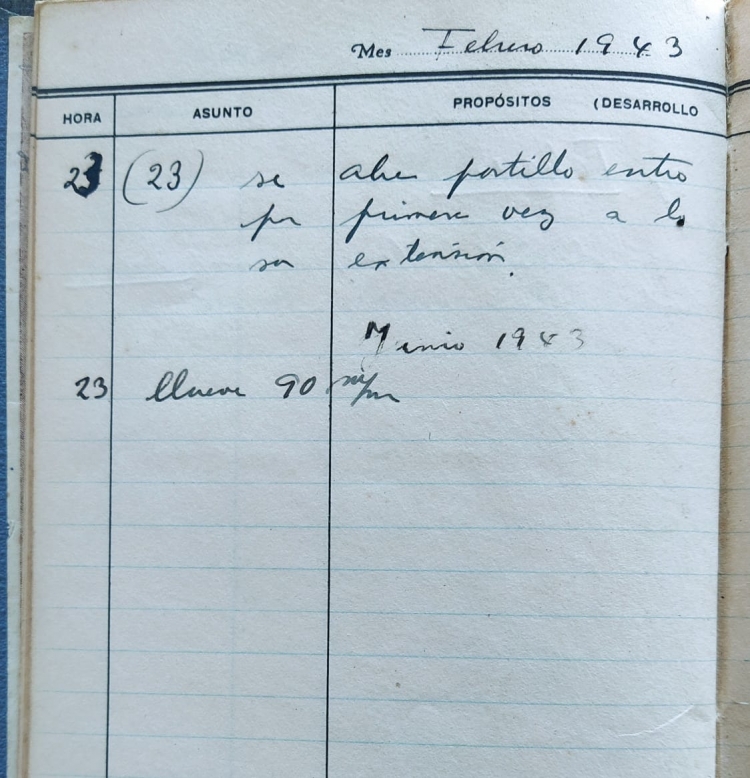 Mes Febrero 1943
HORA ASUNTO PROPÓSITOS (DESARROLLO
23 (23) se abre portillo entro
por primera vez a lo
sa extensión.
Junio 1943
23 llueve 90 m/m